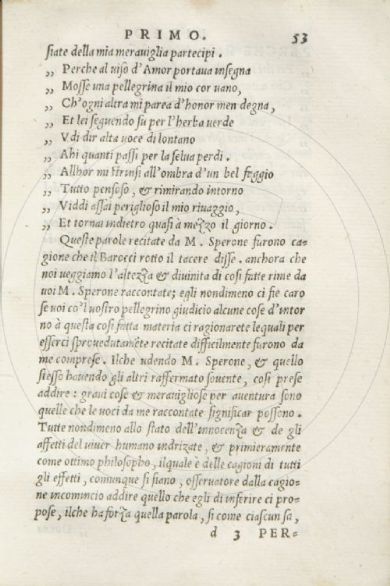 PRIMO. 53
siate della mia merauiglia partecipi.
„ Perche al uiso d'Amor portaua insegna
„ Mosse una pellegrina il mio cor uano,
„ Ch'ogni altra mi parea d'honor men degna,
„ Et lei seguendo su per l'herba uerde
„ Vdi dir alta uoce di lontano
„ Ahi quanti passi per la selua perdi.
„ Allhor mi strinsi all'ombra d'un bel faggio
„ Tutto pensoso, & rimirando intorno
„ Viddi assai periglioso il mio uiaggio,
„ Et tornai indietro quasi à mezzo il giorno.
Queste parole recitate da M. Sperone furono ca-
gione che il Barocci rotto il tacere disse. anchora che
noi ueggiamo l'altezza & diuinità di cosi fatte rime da
uoi M. Sperone raccontate; egli nondimeno ci fie caro
se uoi co'l uostro pellegrino giudicio alcune cose d'intor
no à questa cosi fatta materia ci ragionarete lequali per
esserci sprouedutamẽte recitate difficilmente furono da
me comprese. Ilche udendo M. Sperone, & quello
stesso hauendo gli altri raffermato souente, cosi prese
addire: graui cose & merauigliose per auentura sono
quelle che le uoci da me raccontate significar possono.
Tutte nondimeno allo stato dell'innocenza & de gli
affetti del uiuer humano indrizate, & primieramente
come ottimo philosopho, ilquale è delle cagioni di tutti
gli effetti, comunque si siano, osseruatore dalla cagio-
ne incominciò addire quello che egli di inferire ci pro-
pose, ilche ha forza quella parola, si come ciascun sa,
d 3 PER-